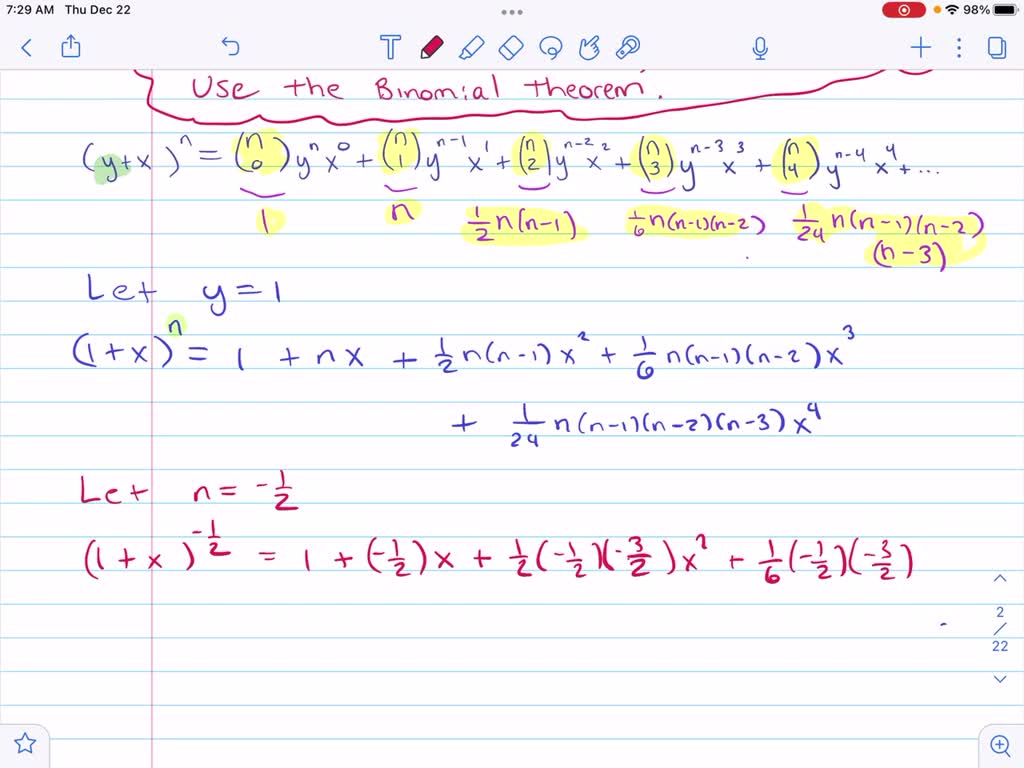 7:29 AM Thu Dec 22 98%
Use the Binomial Theorem.
(y+x)^n = (n 0) y^n x^0 + (n 1) y^{n-1} x^1 + (n 2) y^{n-2} x^2 + (n 3) y^{n-3} x^3 + (n 4) y^{n-4} x^4 + ...
1 n 1/2 n(n-1) 1/6 n(n-1)(n-2) 1/24 n(n-1)(n-2)
(n-3)
Let y = 1
(1+x)^n = 1 + nx + 1/2 n(n-1)x^2 + 1/6 n(n-1)(n-2)x^3
+ 1/24 n(n-1)(n-2)(n-3)x^4
Let n = -1/2
(1+x)^{-1/2} = 1 + (-1/2)x + 1/2(-1/2)(-3/2)x^2 + 1/6(-1/2)(-3/2)
2
/
22